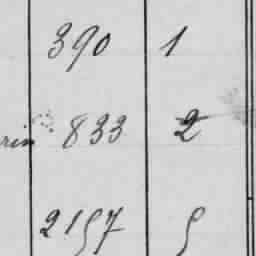 390 1
rin 833 2
2157 5